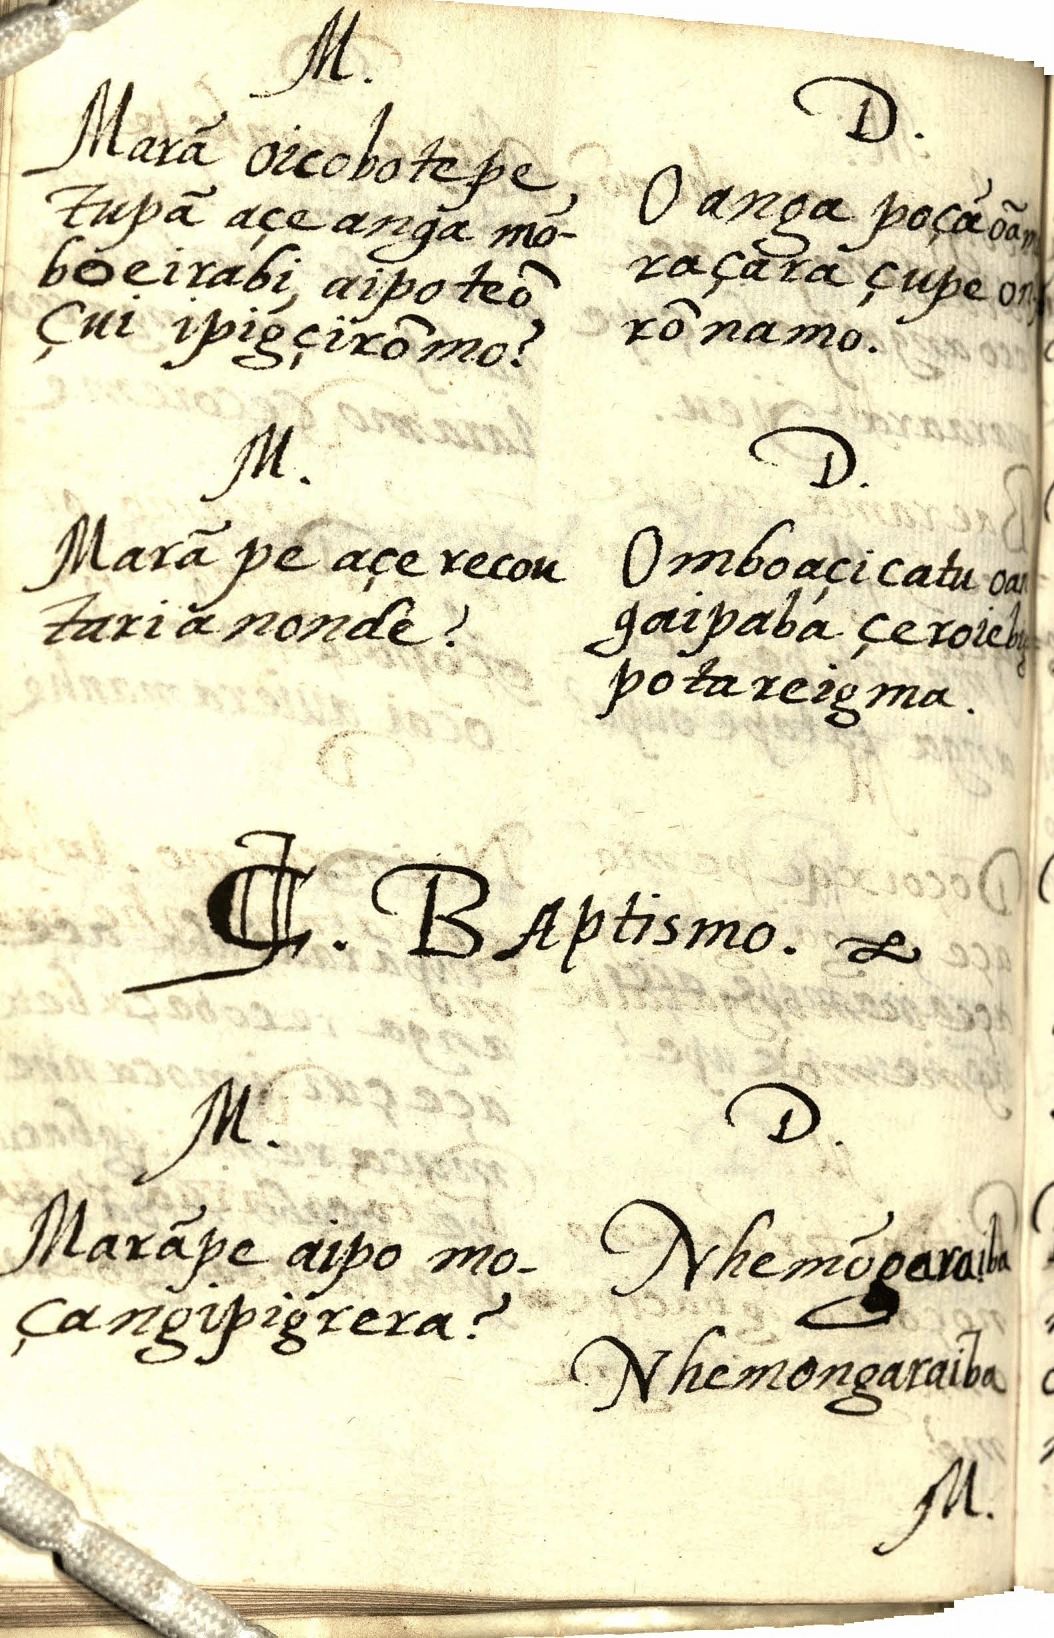 M.
Marã oicobotepe
tupã açe anga mõ-
boeirabi, aipoteõ
çui ipigçirõmo?
D.
O anga poçã
raçara çupe
rõnamo.
M.
Marã pe açe recou
tari a nonde?
D.
Omboaçi catu
gaipaba çeroieb
potareigma.
C. BAptismo.
M.
Marãpe aipo mo-
çangipigrera?
D.
Nhemõgaraiba
Nhemongaraiba
M.